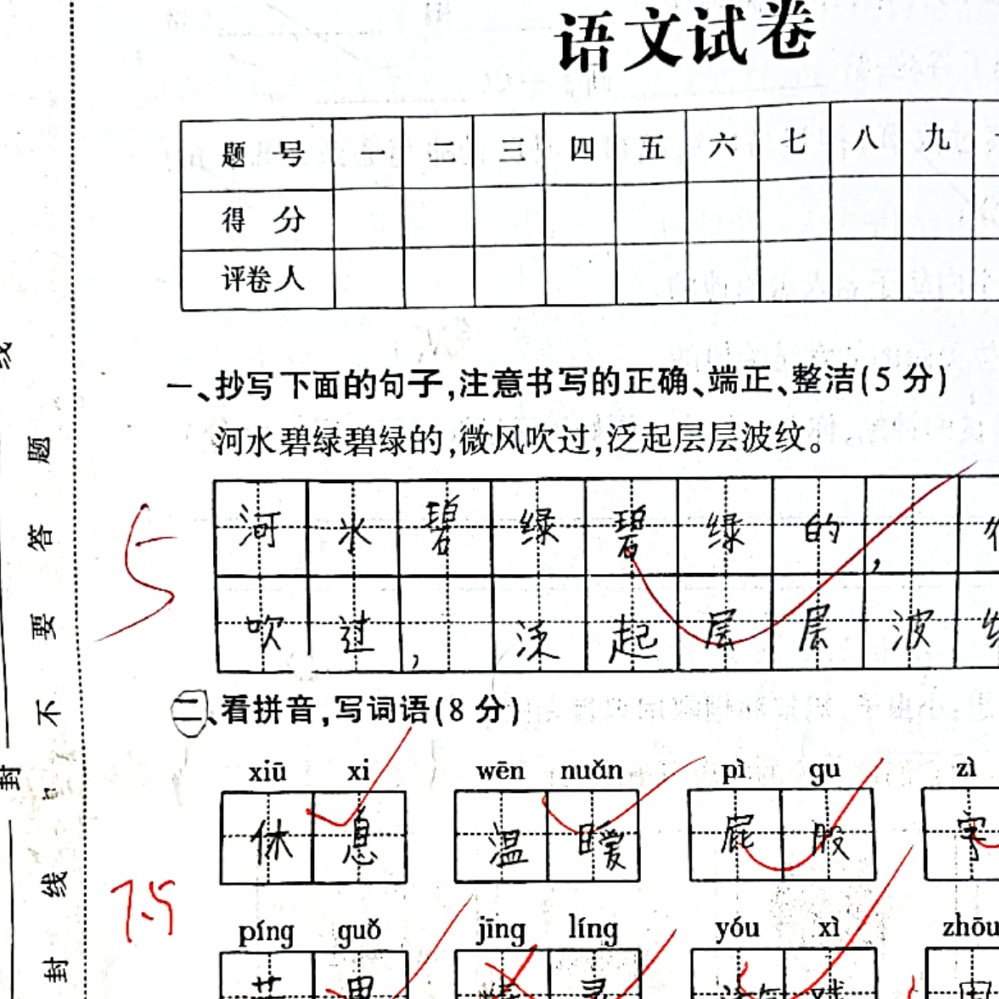 语文试卷
题 号 一 二 三 四 五 六 七 八 九
得 分
评卷人
一、抄写下面的句子,注意书写的正确、端正、整洁(5 分)
河水碧绿碧绿的,微风吹过,泛起层层波纹。
河水碧绿碧绿的,
吹过,泛起层层波
5
二、看拼音,写词语(8 分)
xiū xi wēn nuǎn pì gu zì
休息 温暖 屁股 字
7.5
píng guǒ jīng líng yóu xì zhōu
线
封
封 线 不 要 答 题